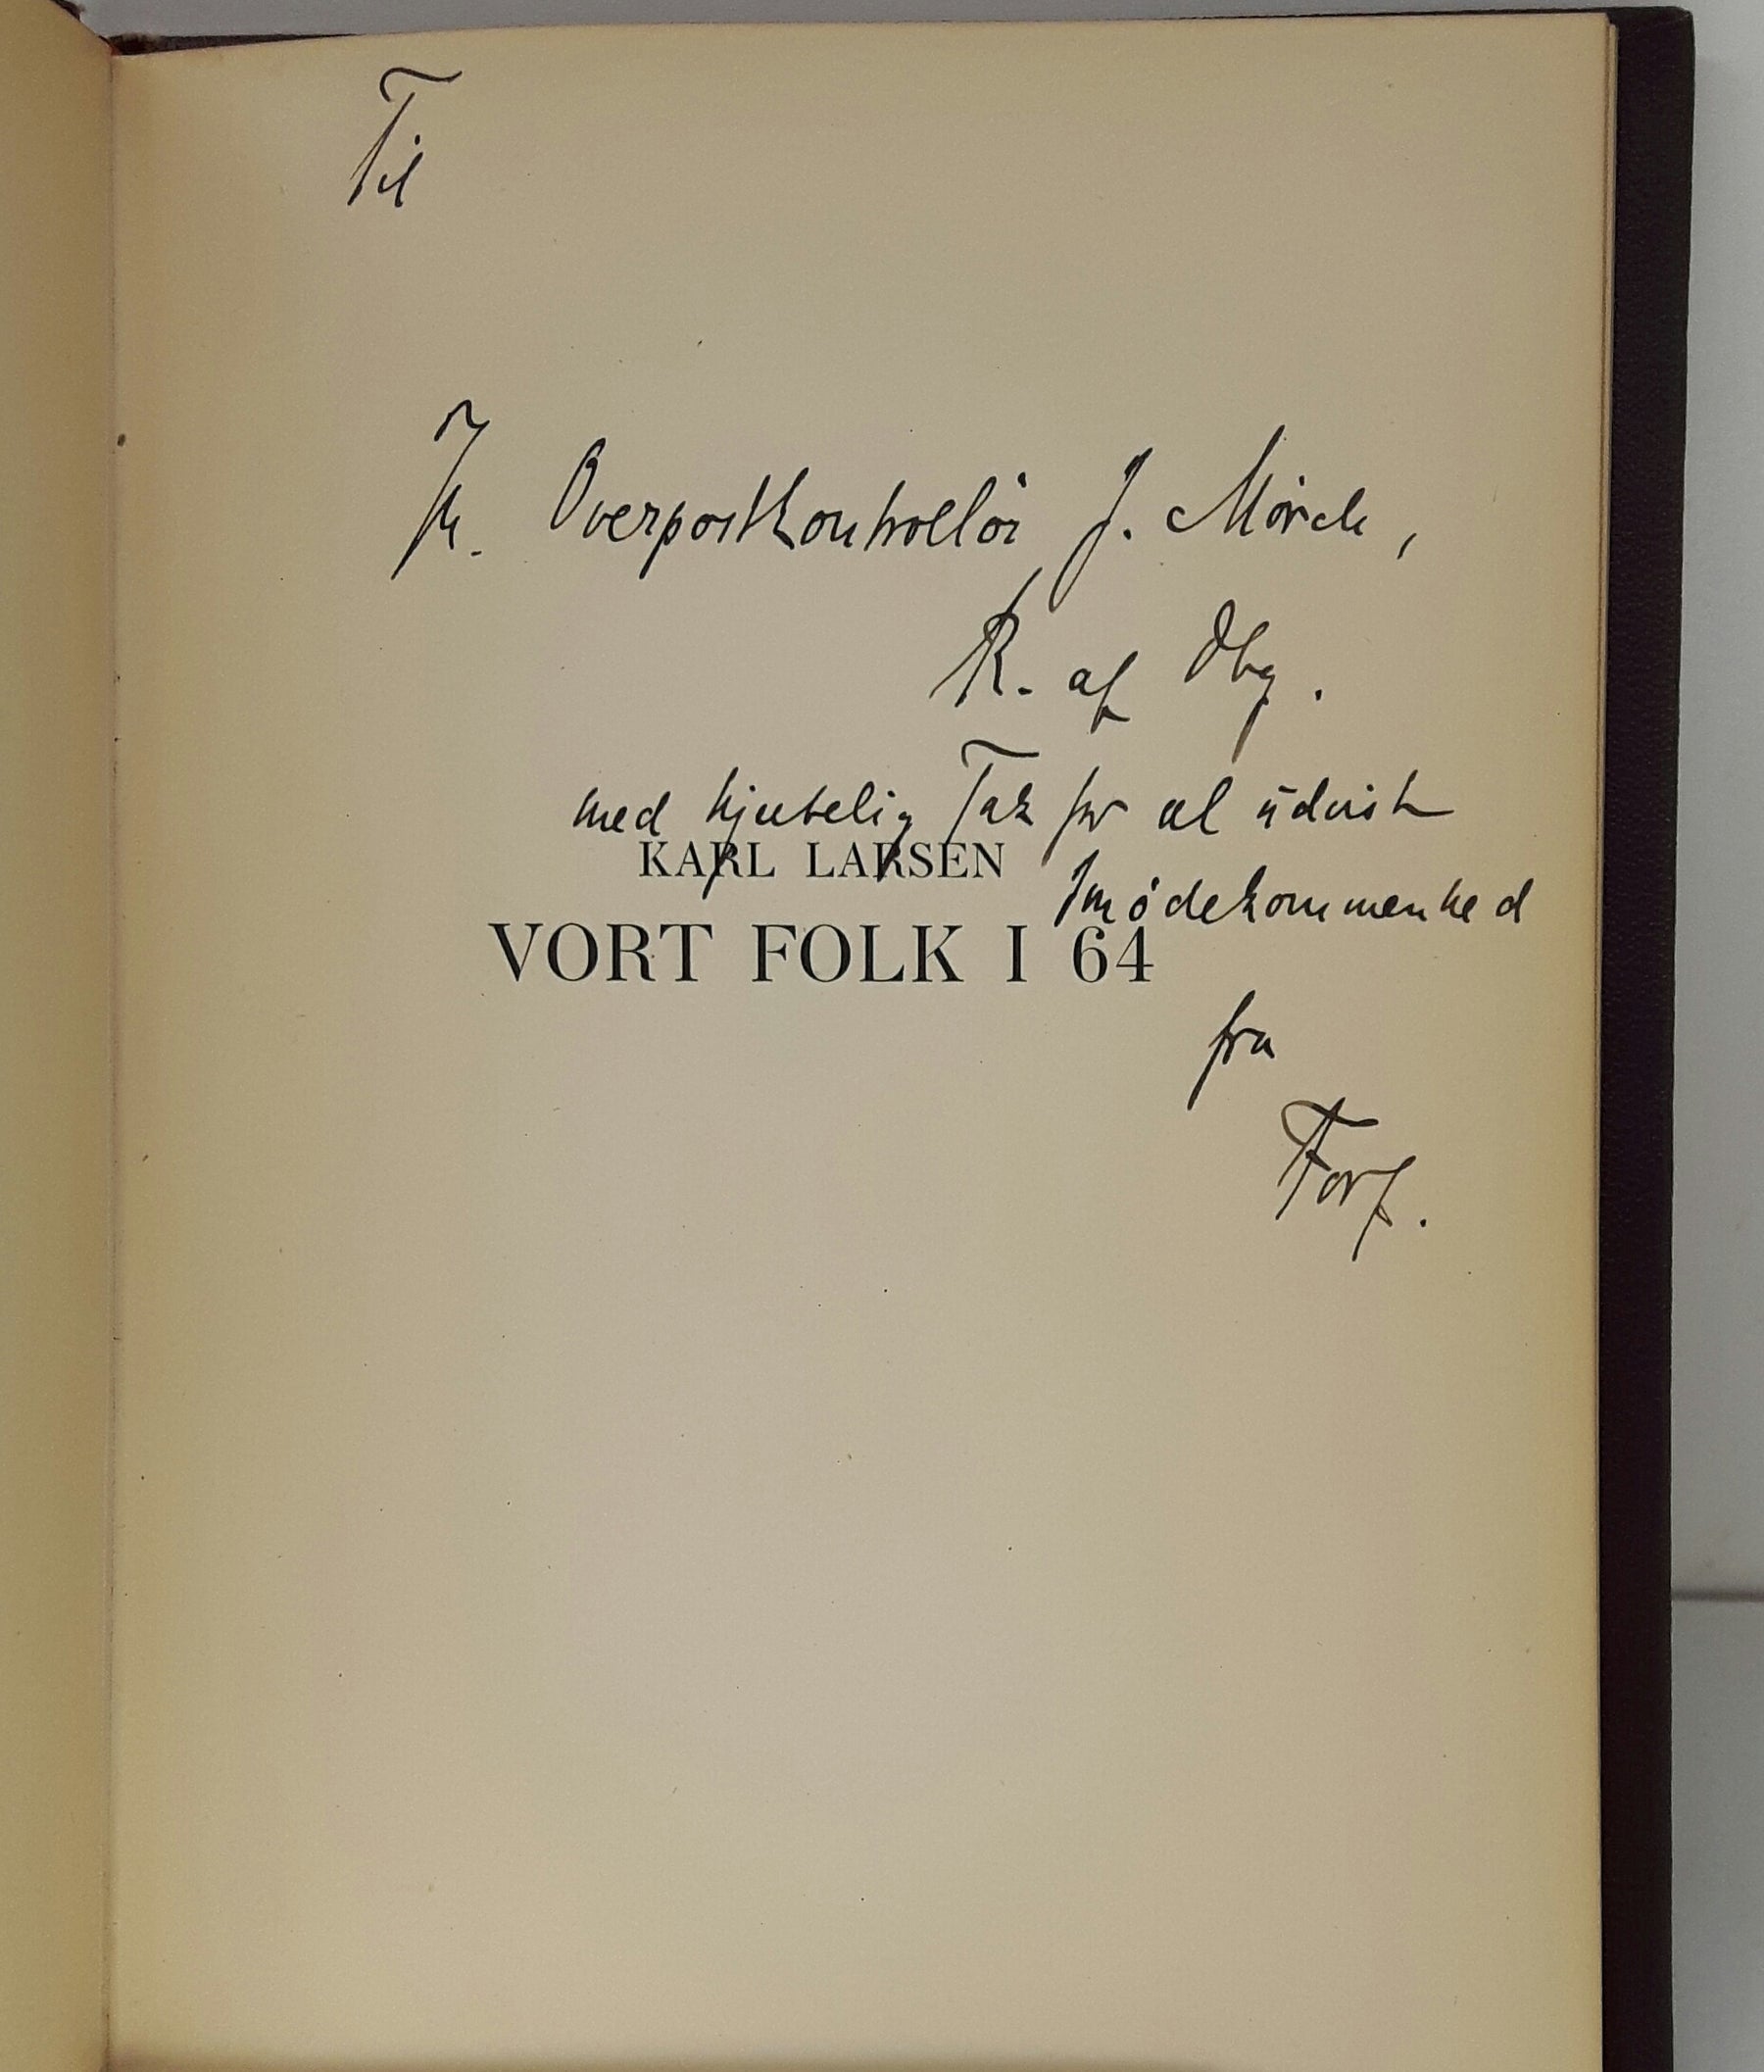 Til
Hr. Overpostkontrollør J. Mørch,
R. af Dbg.
med hjertelig Tak for al udvist
KARL LARSEN
Imødekommenhed
VORT FOLK I 64
fra
Forf.